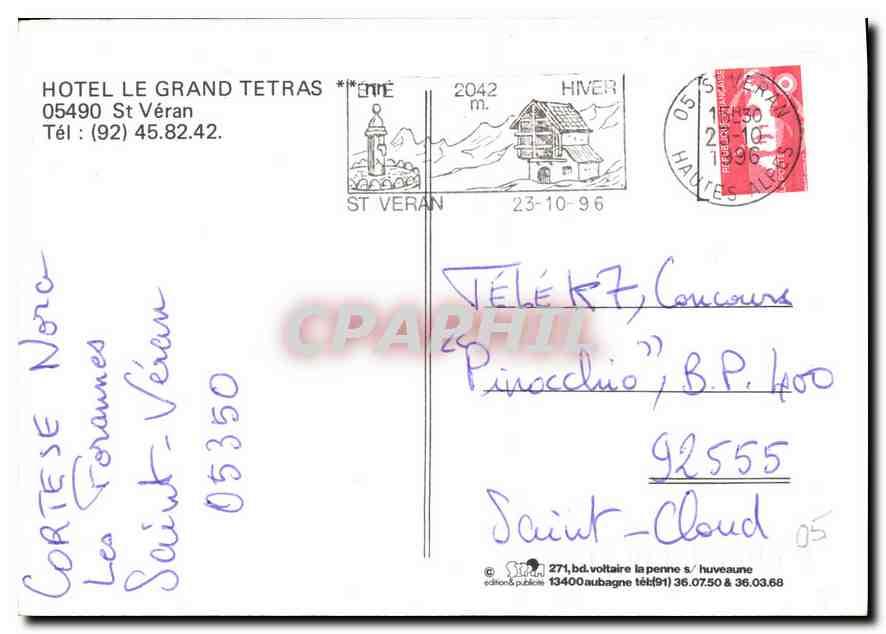 HOTEL LE GRAND TETRAS **nn
05490 St Véran
Tél : (92) 45.82.42.
ÉTÉ
2042 m.
HIVER
ST VERAN 23-10-96
05 ST VERAN
15H30
10
1996
HAUTES ALPES
REPUBLIQUE FRANÇAISE
POSTE
CORTESE Nora
Les Forannes
Saint-Véran
05350
TÉLÉ K7, Concours
"Pinocchio", B.P. 400
92555
Saint-Cloud
05
CPAPHIL
© 271, bd. voltaire la penne s/ huveaune
edition & publicité 13400 aubagne tél: (91) 36.07.50 & 36.03.68